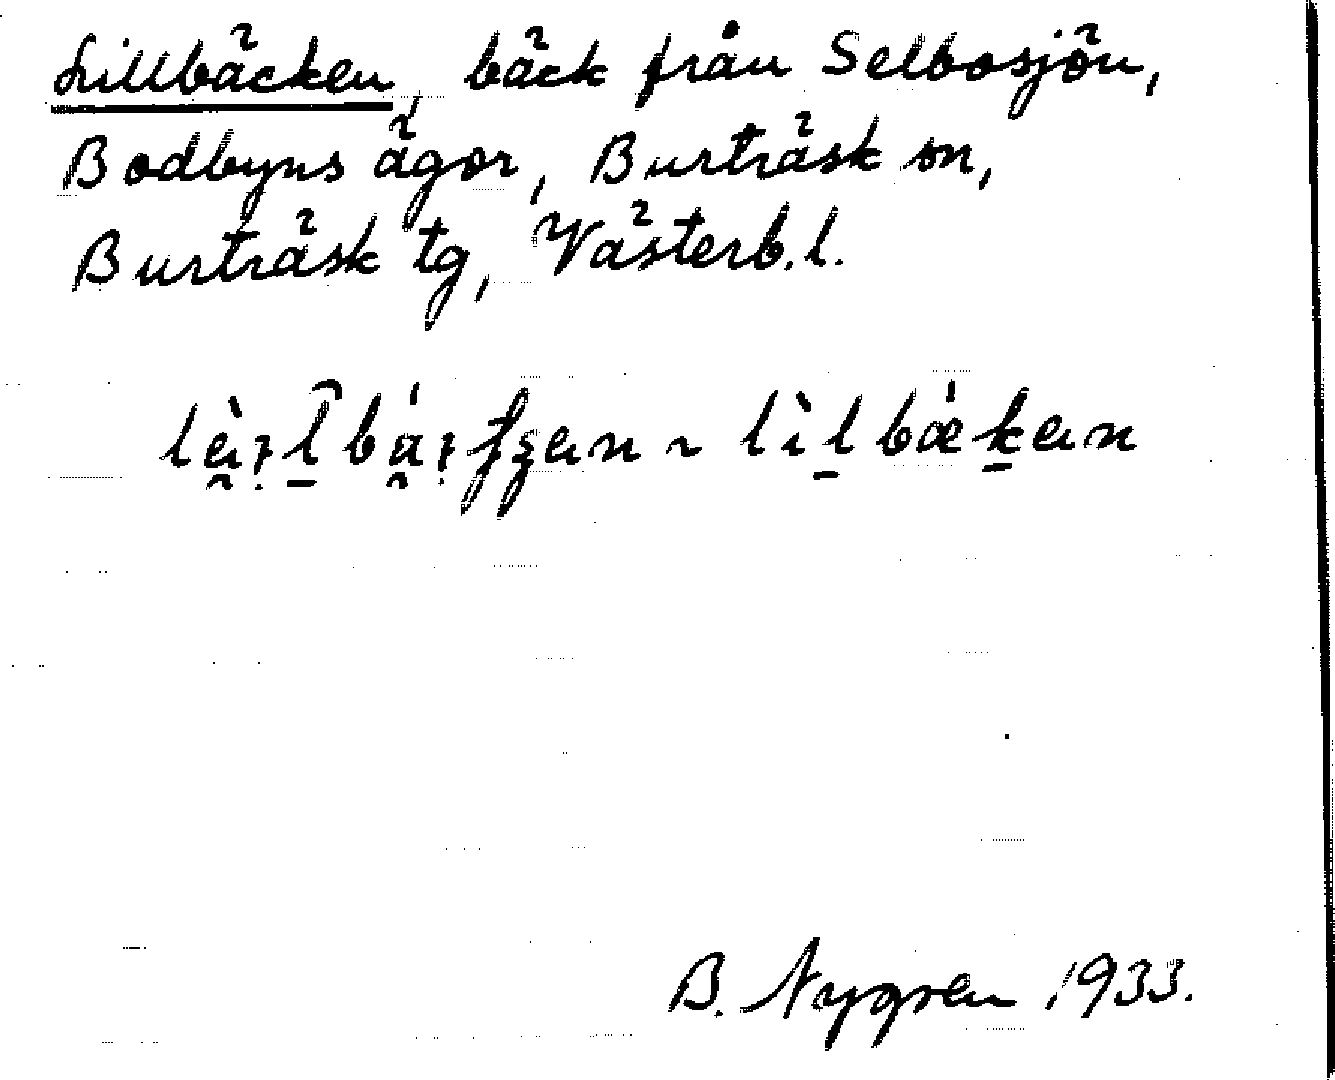 Lillbäcken, bäck från Selbosjön,
Bodbyns ägor, Burträsk sn,
Burträsk tg, Västerb.l.
B. Nygren 1933.